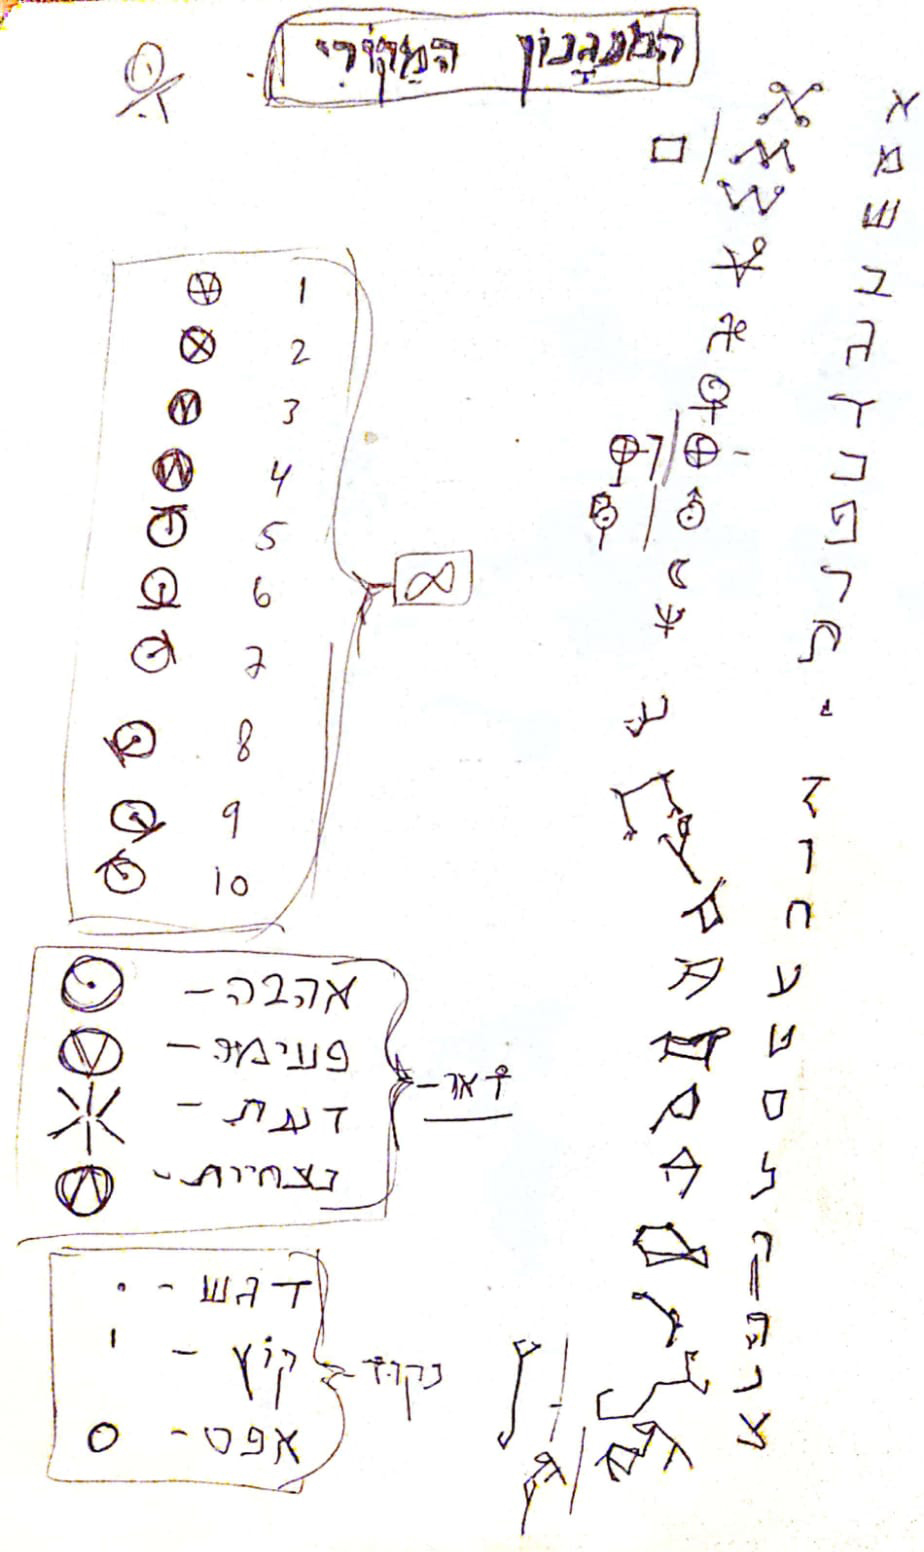 המנגָנוֹן המַקוֹרִי
א
מ
ש
ב
ג
ד
כ
פ
ר
ת
י
ז
ו
ח
ע
ט
ס
ל
ק
ה
נ
צ
1
2
3
4
5
6
7
8
9
10
∞
אהבה -
פעימה -
דעת -
נצחיות -
דגש -
קוֹץ -
אפס -
נקוד